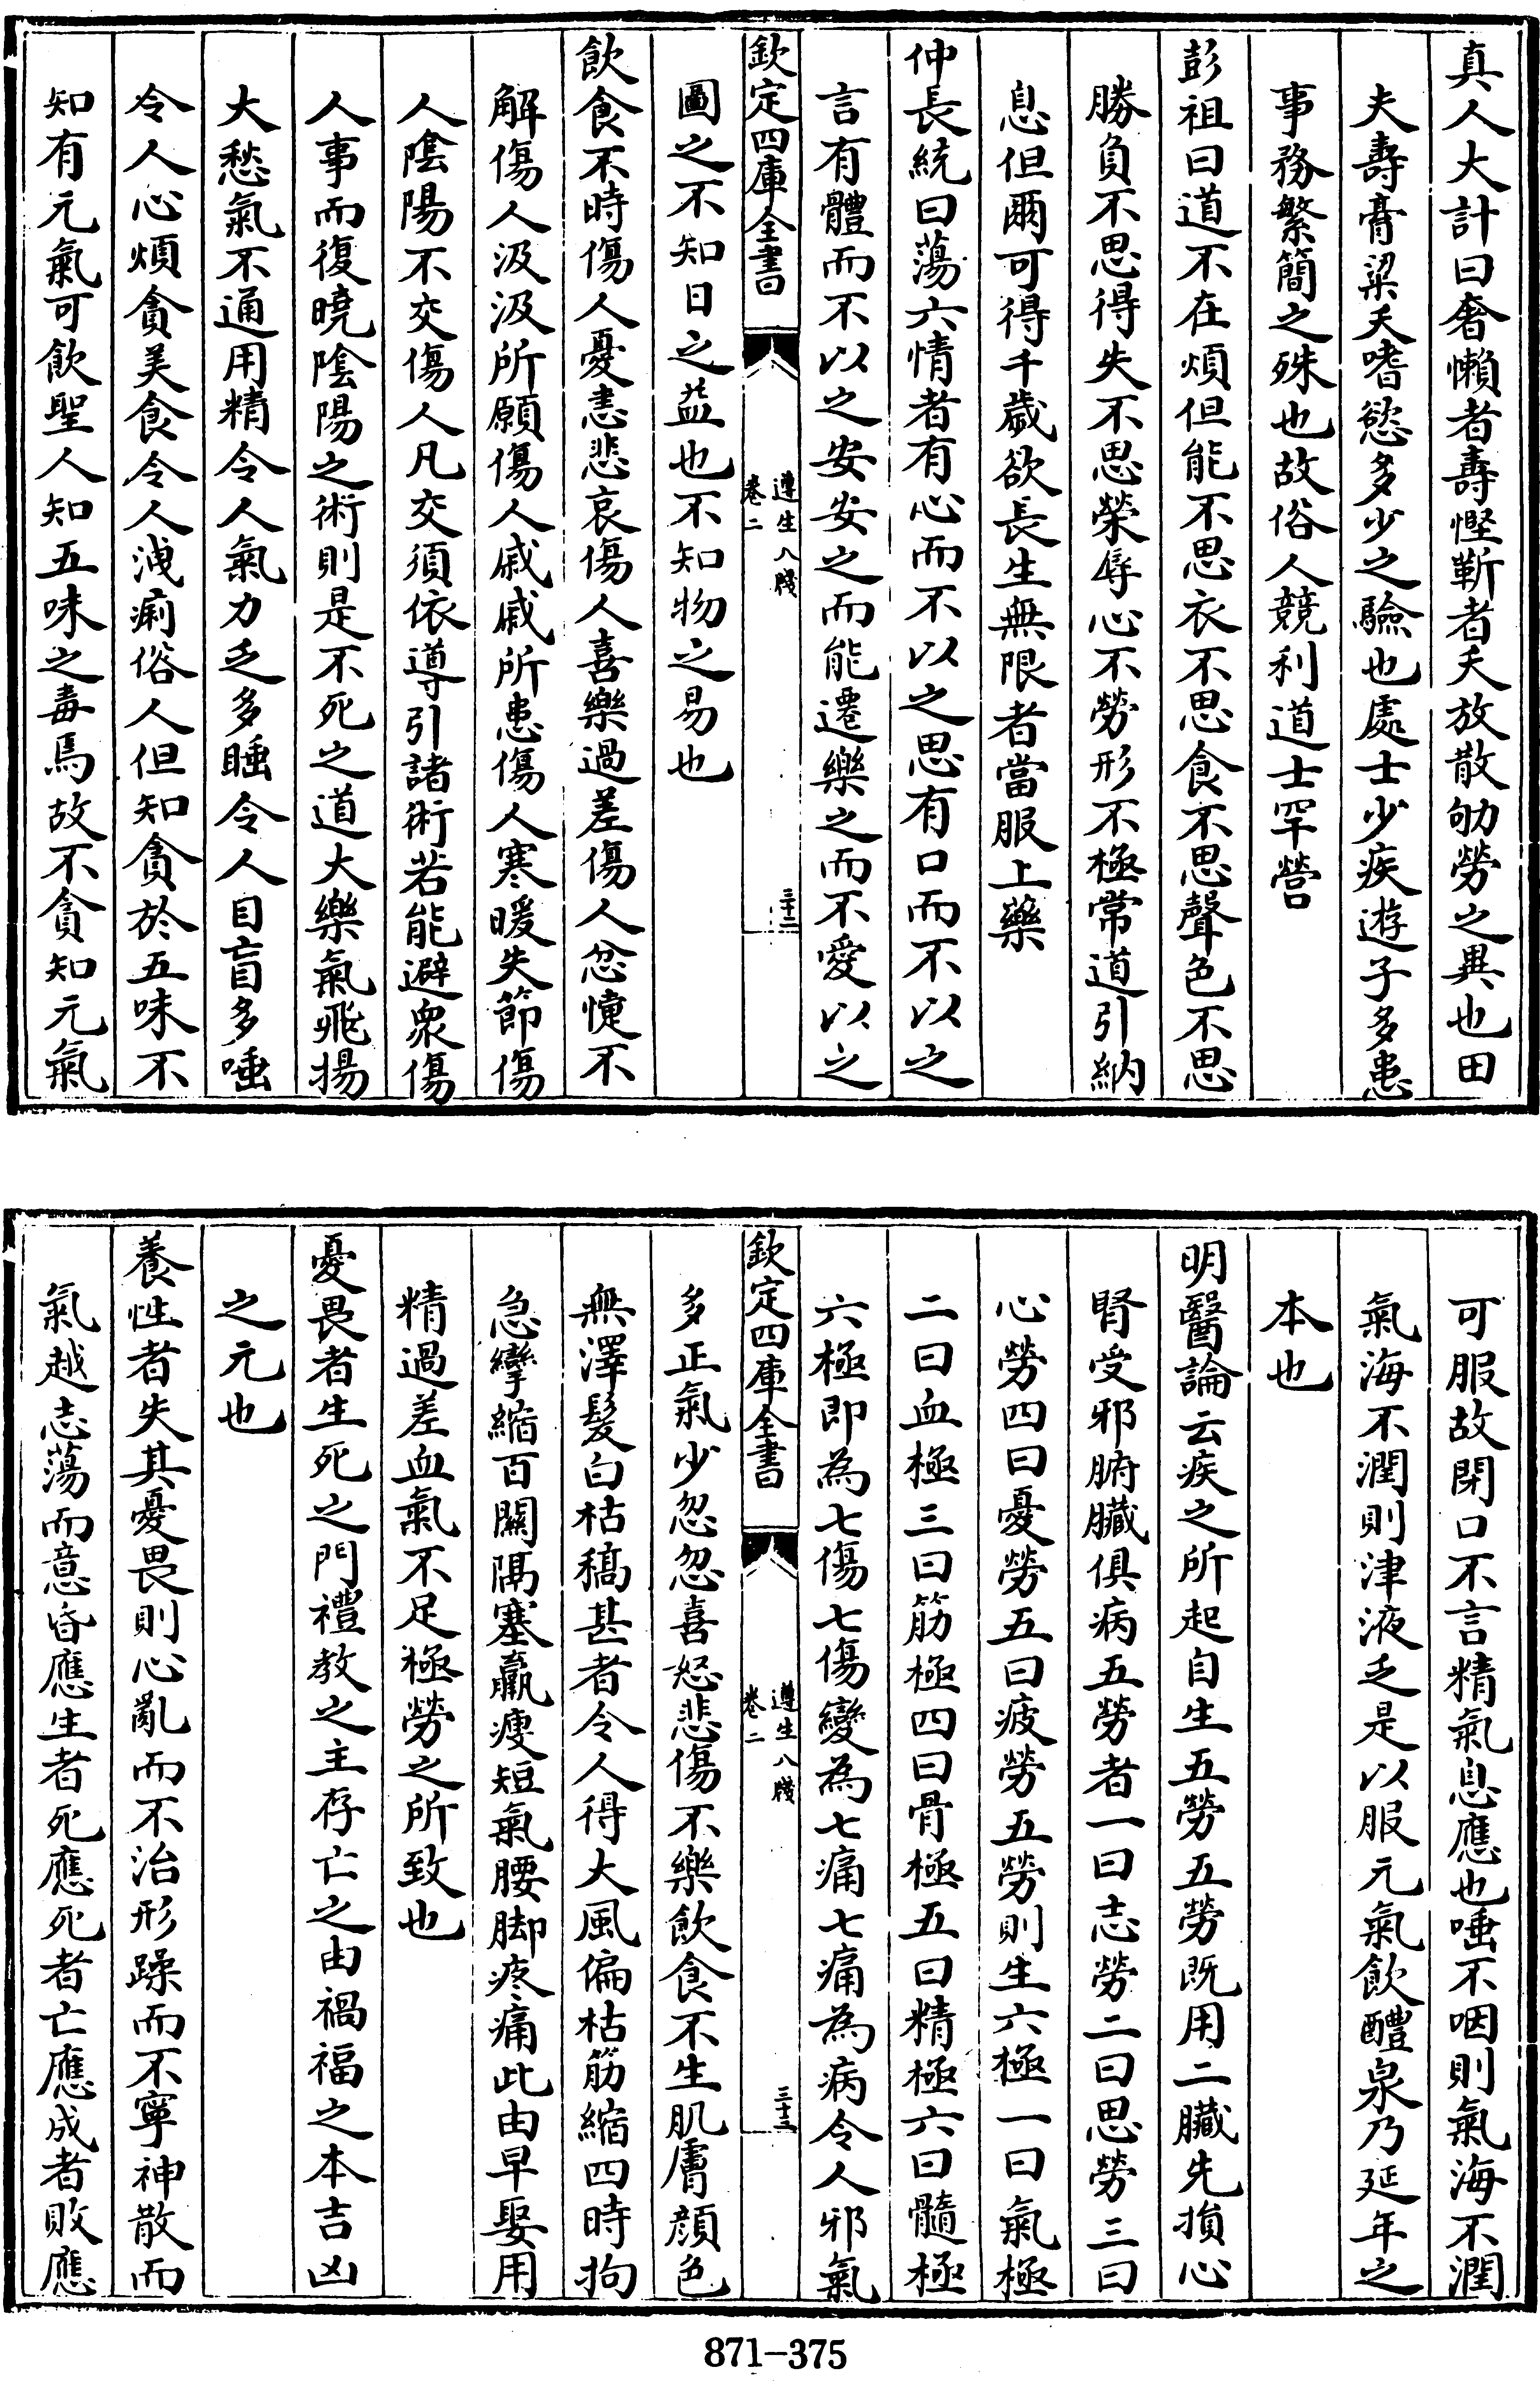 真人大計曰奢懶者壽慳靳者夭放散劬勞之異也田
夫壽膏粱夭嗜慾多少之驗也處士少疾遊子多患
事務繁簡之殊也故俗人競利道士罕營
彭祖曰道不在煩但能不思衣不思食不思聲色不思
勝負不思得失不思榮辱心不勞形不極常道引納
息但爾可得千歲欲長生無限者當服上藥
仲長統曰蕩六情者有心而不以之思有口而不以之
言有體而不以之安安之而能遷樂之而不愛以之
圖之不知日之益也不知物之易也
欽定四庫全書
遵生八牋
卷二
三十二
飲食不時傷人憂恚悲哀傷人喜樂過差傷人忿懥不
解傷人汲汲所願傷人戚戚所患傷人寒暖失節傷
人陰陽不交傷人凡交須依導引諸術若能避衆傷
人事而復曉陰陽之術則是不死之道大樂氣飛揚
大愁氣不通用精令人氣力乏多睡令人目盲多唾
令人心煩貪美食令人洩痢俗人但知貪於五味不
知有元氣可飲聖人知五味之毒焉故不貪知元氣
可服故閉口不言精氣息應也唾不咽則氣海不潤
氣海不潤則津液乏是以服元氣飲醴泉乃延年之
本也
明醫論云疾之所起自生五勞五勞既用二臟先損心
腎受邪腑臟俱病五勞者一曰志勞二曰思勞三曰
心勞四曰憂勞五曰疲勞五勞則生六極一曰氣極
二曰血極三曰筋極四曰骨極五曰精極六曰髓極
六極即為七傷七傷變為七痛七痛為病令人邪氣
欽定四庫全書
遵生八牋
卷二
三十三
多正氣少忽忽喜怒悲傷不樂飲食不生肌膚顏色
無澤髮白枯稿甚者令人得大風偏枯筋縮四時拘
急攣縮百關隔塞羸瘦短氣腰脚疼痛此由早娶用
精過差血氣不足極勞之所致也
憂畏者生死之門禮教之主存亡之由禍福之本吉凶
之元也
養性者失其憂畏則心亂而不治形躁而不寧神散而
氣越志蕩而意昏應生者死應死者亡應成者敗應
871-375